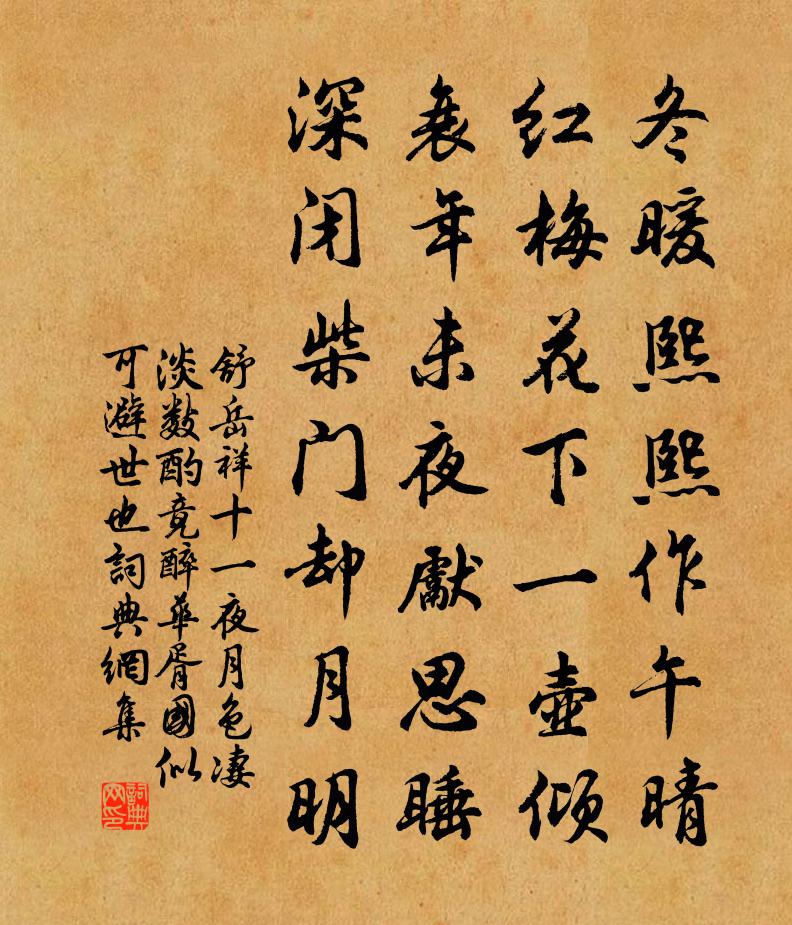 冬暖熙熙作午晴
红梅花下一壶倾
衰年未夜厭思睡
深闭柴门却月明
舒岳祥十一夜月色凄
淡数酌竟醉华胥國似
可避世也詞典網集
詞典网印